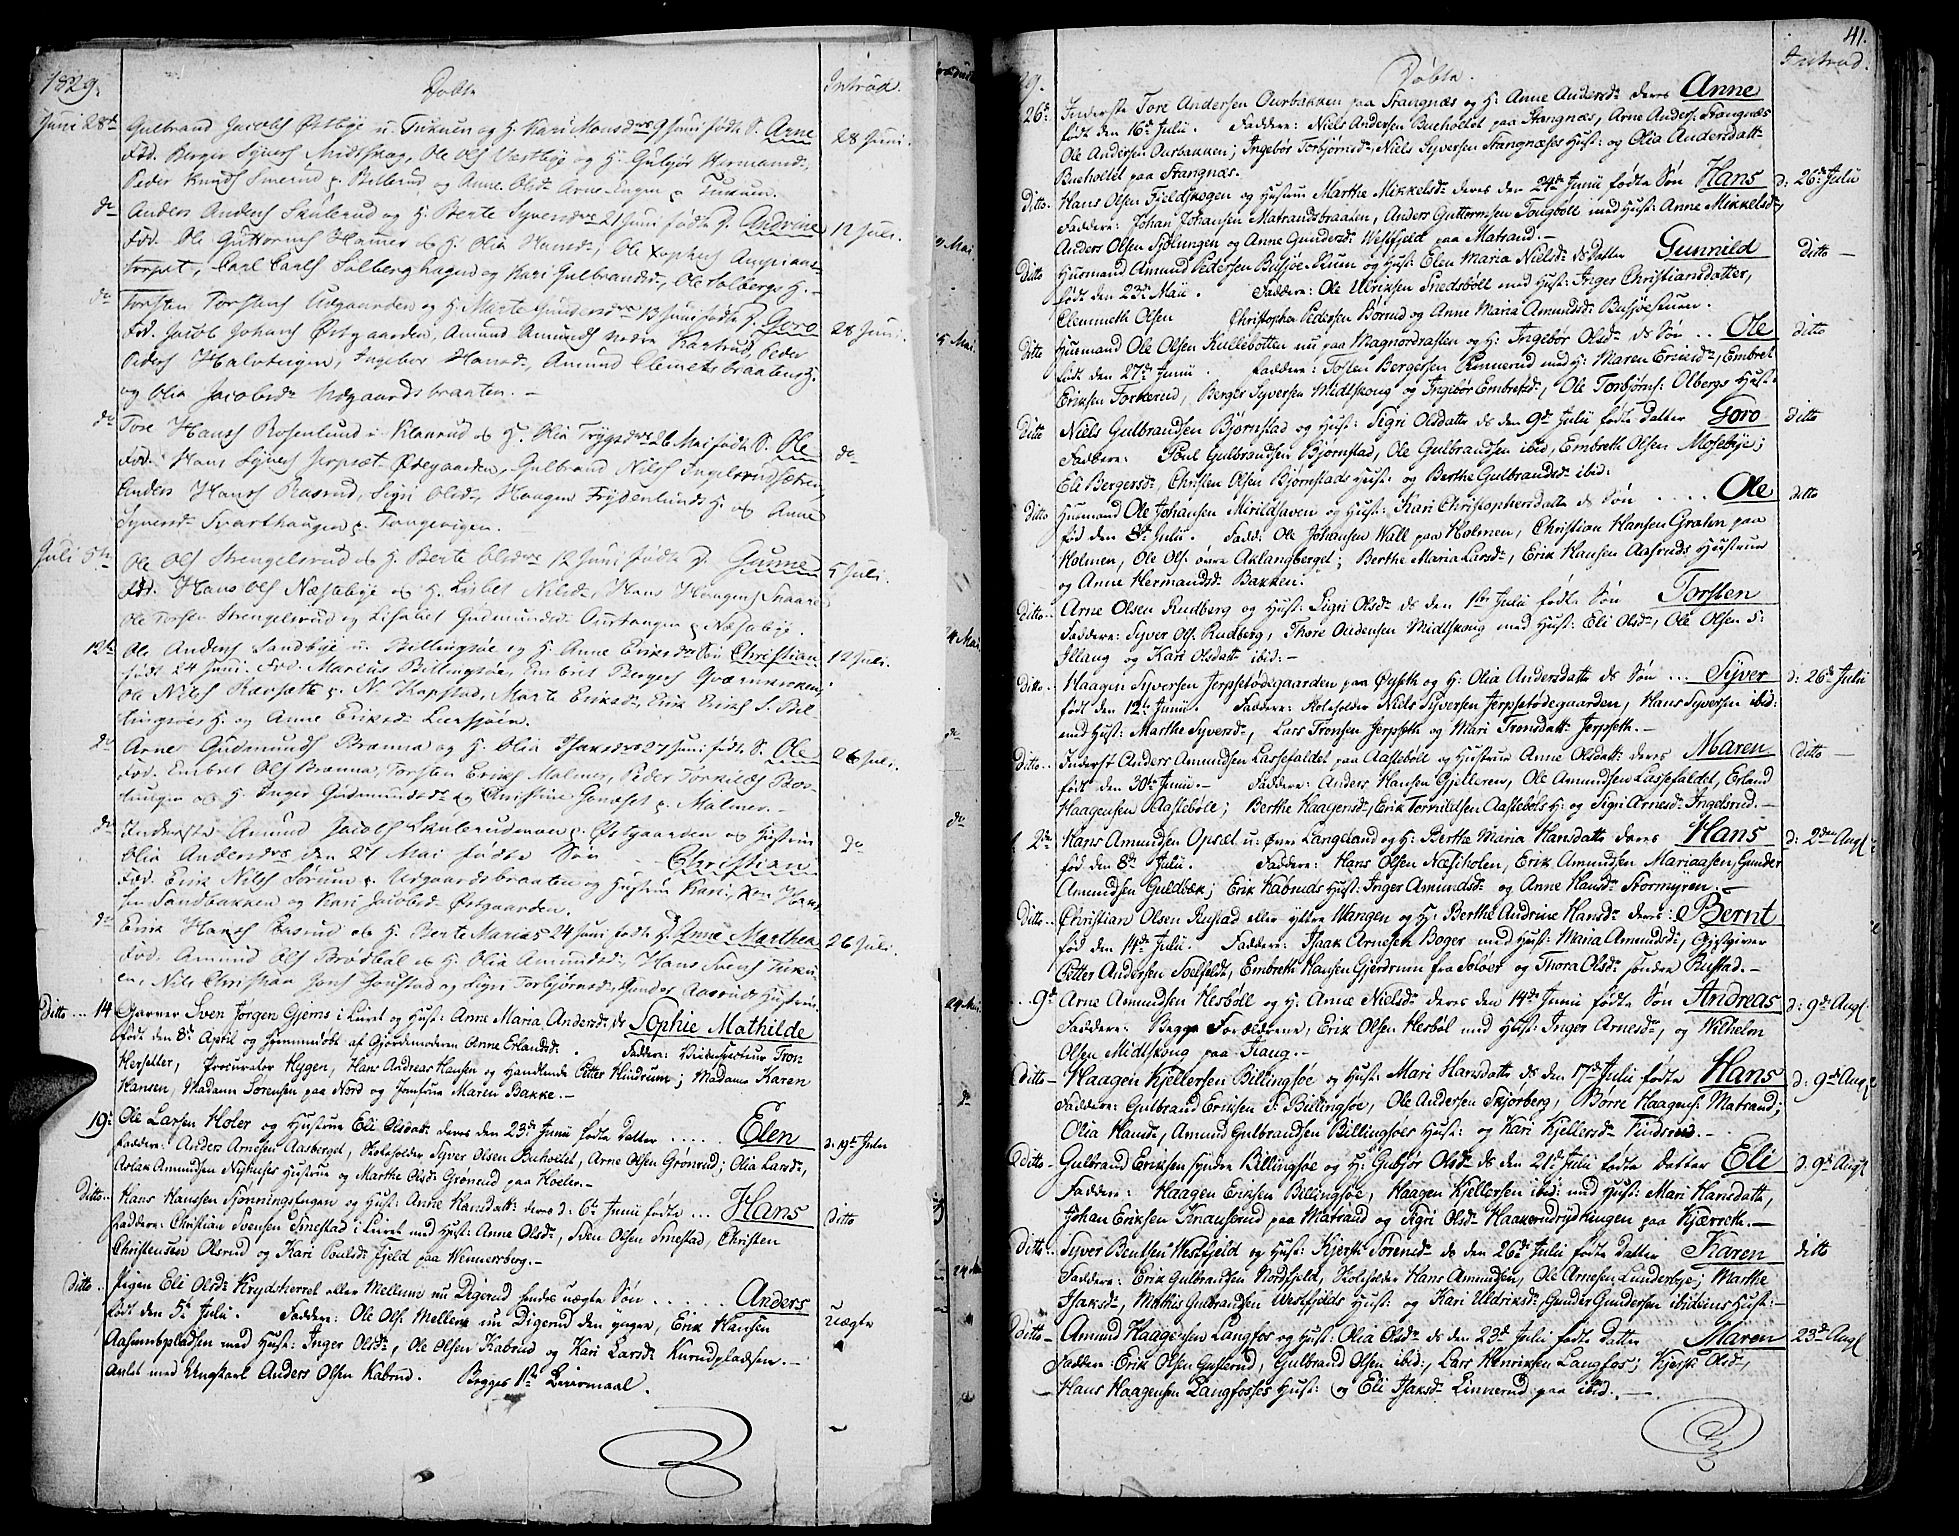 1829.
Døbte
Introd.
Juni 28de Gulbrand Jacobs Østbye u. Tukuen og H. Kari Monsdr 9 Juni fødte S. Arne 28 Juni.
Fad. Berger Syvers Midtskog, Ole Ols Vestbye og H. Gubjør Hermansd,
Peder Knuds Smerud p. Billerud og Anne Olsdr Arne-Engen p Tukuen.
do Anders Anders Skulerud og H. Berte Syversdr 21 Juni fødte D. Andrine 12 Juli.
Fad. Ole Guttorms Hamer og H. Olia Hansdr, Ole
torpet, Carl Carls Solberghagen og Kari Gulbrandsdr, Ole Solbergs H. -
do Torsten Torstens Udgaarden og H. Marte Gundersdr 13 Juni fødte D. Goro 28 Juni.
Fad. Jacob Johans Østgaarden, Amund Amunds nedre Kastrud, Peder
Peders Halvdengen, Ingebor Hansdr, Amund Clemetsbraatens H.
og Olia Jacobsdr Udgaardsbraaten. -
do Tore Hans Rosenlund i Klanrud og H. Olia Trygsdr 26 Mai fødte S. Ole do
Fad. Hans Syvers Jerpset-Ødegaarden, Gulbrand Nils Ingelsrudsætre,
Anders Hans Rasrud, Sigri Olsdr, Haagen Frydenlunds H. og Anne
Syversdr Svarthaugen p. Tangevigen.
Juli 5te Ole Ols Strengelsrud og H. Berte Olsdr 12 Juni fødte D. Gunne 5 Juli.
Fad. Hans Ols Næsebye og H. Lisbet Nilsdr, Hans Haagens Snaare
Ole Torsten Strengelsrud og Lisabet Gudmundsdr Ourtangen p Næsebye.
12te Ole Anders Sandbye u. Billingsøe og H. Anne Eriksdr Søn Christian 12 Juli.
født 24 Juni. Fad. Marius Billingsøe, Embret Bergers Qværnbakken,
Ole Nils Kærsætte p. N. Kopstad, Marte Eriksdr, Erik Erichs S. Bil
lingsøes H. og Anne Eriksdr Leersjøen.
do Arne Gudmunds Brænna og H. Olia Isaksdr 27 Juni fødte S. Ole 26 Juli.
Fad. Embret Ols Brænna, Torsten Eriks Malmer, Peder Torkilds Bov-
lungen og H. Inger Gudmundsdr og Christine p. Malmer. -
do Inderste Amund Jacobs Skulerudmoen p. Østgaarden og Hustrue do
Olia Andersdr den 27 Mai fødte Søn Christian
Fad. Erik Nils Sørum p. Udgaardsbraaten og Hustrue Kari, Hans
Sandbakken og Kari Jacobsdr Østgaarden.
do Erik Hans Rasrud og H. Berte Marias 24 Juni fødte D. Anne Marthea 26 Juli.
Fad. Amund Ols Brødbøl og H. Olia Amundsdr, Hans Svens Tuku-
en, Nils Christian Jons Goustad og Sigri Torbjørnsdr, Gunder Aasruds Hustrue.
Ditto ... 14 Garver Sven Jørgen Gjems i Lunet og Hust: Anne Maria Andersdr ds Sophie Mathilde
født den 8de April og hjemmedøbt af Gjordemoderen Anne Erlandsdr. Faddere: Veiinspecteur Tron
Hersetter, Procurator Hygen, Hans Andreas Hansen og Handlende Petter Hindrum; Madame Karen
Hansen, Madam Sørensen paa Nord og Jomfrue Maren Bakke. -
19: Ole Larsen Holer og Hustrue Eli Olsdatt: deres den 23de Junii fødte datter ..... Elen d. 19de Julii
Faddere: Anders Arnesen Aasberget, Holeholder Syver Olsen Buholtet, Arne Olsen Grønrud; Olia Larsdr,
Aslak Amundsen Nyhuses Hustrue og Marthe Olsdr Grønrud paa Hoelen. -
Ditto.. Hans Hanssen Sjønningshagen og Hust: Anne Hansdatt: deres d: 6te Junii fødte ... Hans Ditto
Faddere: Christian Svensen Sinestad i Lunet med Hust: Anne Olsdr, Sven Olsen Sinestad, Christen
Christensen Olsrud og Kari Poulsdr Fjeld paa Wennersberg. -
Ditto.. Pigen Eli Olsdr Krydsherret eller Mellem nu Digerud hendes uægte Søn ...... Anders uægte
født den 5te Julii. Faddere: Ole Ols. Mellem nu Digerud den yngre, Erik Hansen
Aasumspladsen med Hust: Inger Olsdr, Ole Olsen Kabrud og Kari Larsdr Kurudpladsen. -
Avlet med Ungkarl Anders Olsen Kabrud. Begges 1ste Leiermaal.
41.
29.
Døbte.
Introd.
26de Inderste Tore Andersen Ourbakken paa Stangnæs og H: Anne Andersdr deres Anne
født den 16de Julii. Faddere: Niels Andersen Bueholtet paa Stangnæs, Arne Anders: Stangnæs
Ole Andersen Ourbakken; Ingebor Torbjørnsdr, Niels Syversen Stangnæses Hust: og Olia Andersdatt
Bueholtet paa Stangnæs.
Ditto. Hans Olsen Fjeldskogen og Hustrue Marthe Mikkelsdr deres den 24de Junii fødte Søn Hans d: 26de Julii
Faddere: Johan Johansen Matrandsbraaten, Anders Guttormsen Tongbøll med Hust: Anne Mikkelsdr,
Anders Olsen Sjølungen og Anne Gundersdr Westfjeld paa Matrand. -
Ditto Husmand Amund Pedersen Busjøe-Stuen og Hust: Elen Maria Nielsdr ds Datter Gunnild Ditto -
født den 23de Mai. Faddere: Ole Ulriksen Snedsbøll med Hust: Inger Christiansdatter,
Clemmeth Olsen Christopher Pedersen Børrud og Anne Maria Amundsdr Busjøestuen.
Ditto Husmand Ole Olsen Kullebotten nu paa Magnordraften og H: Ingebor Olsdr ds Søn .. Ole ditto
født den 27de Junii. Faddere: Tosten Bergersen Rennerud med H: Maren Eriksdr, Embret
Eriksen Torkerud, Berger Syversen Midtskong og Ingebør Embretsdr, Ole Torbjørns: Olbergs Hust:
Ditto Niels Gulbrandsen Bjørnstad og Hust: Sigri Olsdatt ds den 9de Julii fødte datter Goro ditto
Faddere: Poul Gulbrandsen Bjørnstad, Ole Gulbrandsen ibid, Embreth Olsen Mosebye;
Eli Bergersdr, Christen Olsen Bjørnstads Hust: og Berthe Gulbrandsdr ibid:
Ditto Husmand Ole Johansen Mirildhaven og Hust: Kari Christophersdatte ds Søn .... Ole ditto
fød den 8de Julii. Fadd: Ole Johansen Wall paa Holmen, Christian Hansen Grahn paa
Holmen, Ole Ols: øvre Aklangberget; Berthe Maria Larsdr, Erik Hansen Aasruds Hustrue
og Anne Hermandsdr Bakken:
Ditto.. Arne Olsen Rudberg og Hust: Sigri Olsdr ds den 1ste Julii fødte Søn Torsten
Faddere: Syver Ols. Rudberg, Thore Oudensen Midtskong med Hust: Eli Olsdr, Ole Olsen S:
Illang og Kari Olsdatt ibid: -
Ditto.. Haagen Syversen Jerpsetødegaarden paa Øyseth og H: Olia Andersdatte ds Søn ... Syver d: 26de Julii
født den 12te Junii. Faddere: Holeholder Niels Syversen Jerpsetødegaarden, Hans Syversen ibid:
med Hust: Marthe Syversdr, Lars Tronsen Jerpseth og Mari Tronsdatt Jerpseth. -
Ditto.. Inderst Anders Amundsen Lassefaldet paa Aaslebøl og Hustrue Anne Olsdatt: deres Maren ditto -
født den 30te Junii. - Faddere: Anders Hansen Gjelleren, Ole Amundsen Lassefaldet, Erland
Haagensen Aaslebøle; Berthe Haagensdr, Erik Torkildsen Aaslebøls H: og Sigri Arnesdr Ingelsrud. -
2de Hans Amundsen Opsæt u: øvre Langeland og H: Berthe Maria Hansdatte deres Hans d: 2den Augl
fød den 8de Julii. Faddere: Hans Olsen Næsiholen, Erik Amundsen Mariaasen, Gunder
Amundsen Guldbæk; Erik Kabruds Hust: Inger Amundsdr og Anne Hansdr Stormyren. -
Ditto.. Christian Olsen Rustad eller yttre Wangen og H: Berthe Andrine Hansdr deres: Bernt
fød den 14de Julii. Faddere: Isaak Arnesen Boger med Hust: Maria Amundsdr, Gjestgiver
Petter Andersen Soelfeldt, Embreth Hansen Gjerdrum fra Soløer og Thora Olsdr søndre Rustad. -
.. 9de Arne Amundsen Hesbøll og H: Anne Nielsdr deres den 14de Junii fødte Søn Andreas d: 9de Augl
Faddere: Begge Forældrene, Erik Olsen Hesbøl med Hust: Inger Arnesdr, og Wilhelm
Olsen Midtskong paa Traug. -
Ditto - Haagen Kjellersen Billingsøe og Hust: Mari Hansdatte ds den 17de Julii fødte Hans d: 9de Augl
Faddere: Gulbrand Eriksen S. Billingsøe, Ole Andersen Skjørberg, Børre Haagens: Matrand;
Olia Hansdr, Amund Gulbrandsen Billingsøes Hust: og Kari Kjellersdr Findsrud. -
Ditto- Gulbrand Eriksen syndre Billingsøe og H: Gubjør Olsdr ds den 21de Julii fødte datter Eli d. 9de Augl
Faddere: Haagen Ericsen Billingsøe, Haagen Kjellersen ibid: med Hust: Mari Hansdatt,
Johan Eriksen Knauserud paa Matrand og Sigri Olsdr Haakerudrydningen paa Kjærreth. -
Ditto.. Syver Bentsen Westfjeld og Hust: Kjersti Sørensdr ds den 26de Julii fødte datter Karen ditto
Faddere: Erik Gulbrandsen Nordfjeld, Holeholder Hans Amundsen, Ole Arnesen Lunderbye; Marthe
Isaksdr, Mathis Gulbrandsen Westfjelds Hust: og Kari Uldriksdr, Gunder Gundersen ibidens Hust: -
Ditto- Amund Haagensen Langfos og Hust: Olia Olsdr ds den 23de Julii fødte datter Maren 23de Augl
Faddere: Erik Olsen Gusterud, Gulbrand Olsen ibid:, Lars Henriksen Langfos; Kjersti Olsdr,
Hans Haagensen Langfosses Hust: og Eli Isaksdr Linnerud paa ibid. -